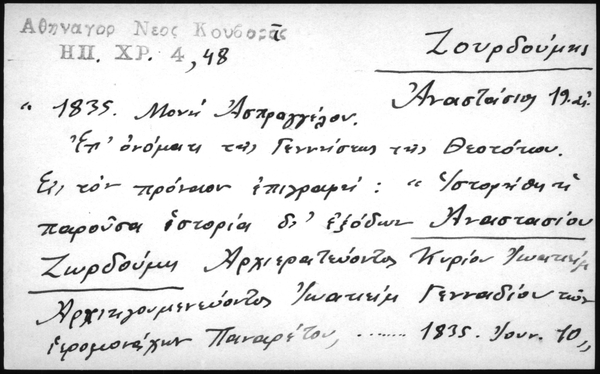 Αθηναγορ Νεος Κουβαρᾶς
ΗΠ. ΧΡ. 4, 48
Ζουρδούμης
Ἀναστάσιος 19. αἰ.
" 1835. Μονή Ἀσπραγγέλου.
Ἐπ' ὀνόματι τῆς Γεννήσεως τῆς Θεοτόκου.
Εἰς τὸν πρόναον ἐπιγραφή : " Ἱστορήθη ἡ
παροῦσα ἱστορία δι' ἐξόδων Ἀναστασίου
Ζωρδούμη Ἀρχιερατεύοντος Κυρίου Ἰωακείμ
Ἀρχιηγουμενεύοντος Ἰωακείμ Γενναδίου τῶν
ἱερομονάχων Παναρέτου, ........ 1835. Ἰουν. 10 "